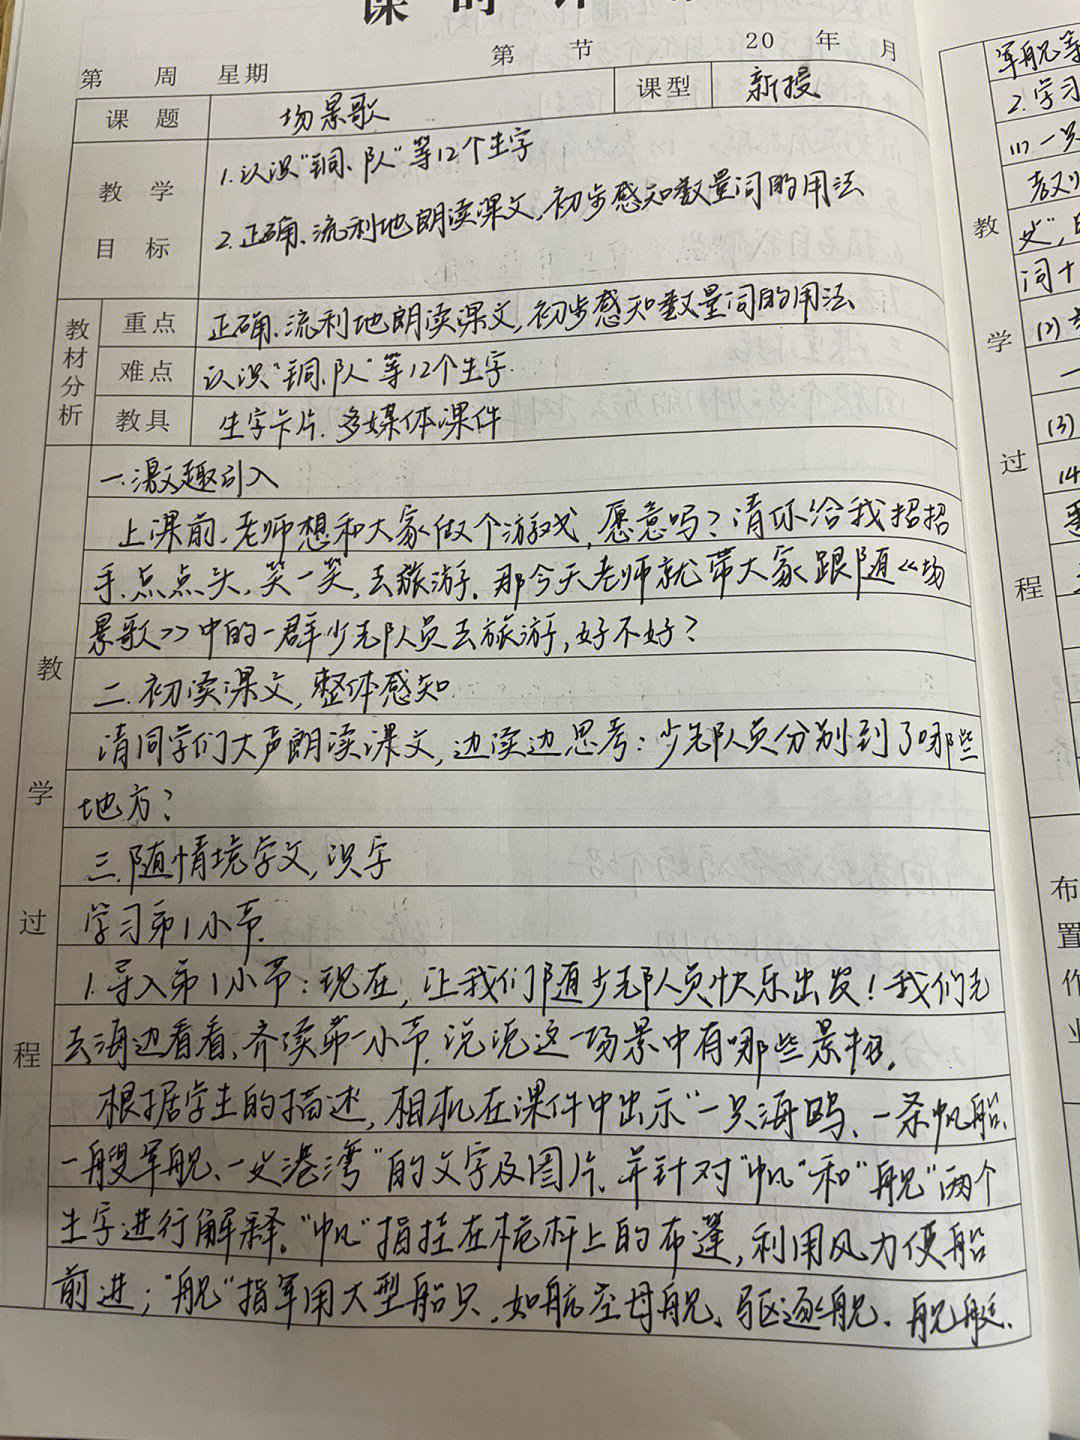 课 时 计
第 周 星期 第 节 20 年 月
课 题 场景歌 课型 新授
教 学 目 标
1.认识“铜、队”等12个生字
2.正确、流利地朗读课文,初步感知数量词的用法
教材分析
重点 正确、流利地朗读课文,初步感知数量词的用法
难点 认识“铜、队”等12个生字.
教具 生字卡片.多媒体课件
教 学 过 程
一.激趣引入
上课前,老师想和大家做个游戏,愿意吗?请你给我招招
手、点点头,笑一笑,去旅游.那今天老师就带大家跟随《场
景歌》中的一群少先队员去旅游,好不好?
二.初读课文,整体感知
请同学们大声朗读课文,边读边思考:少先队员分别到了哪些
地方?
三.随情境学文,识字
学习第1小节.
1.导入第1小节:现在,让我们随少先队员快乐出发!我们先
去海边看看,齐读第一小节.说说这一场景中有哪些景物.
根据学生的描述,相机在课件中出示“一只海鸥、一条帆船、
一艘军舰、一处港湾”的文字及图片,并针对“帆”和“舰”两个
生字进行解释。“帆”指挂在桅杆上的布蓬,利用风力使船
前进;“舰”指军用大型船只,如航空母舰、驱逐舰、舰艇.
教 学 过 程
军舰等
2.学习
(1)一只
处”,
词十
(2)
一
(3)
布置作业